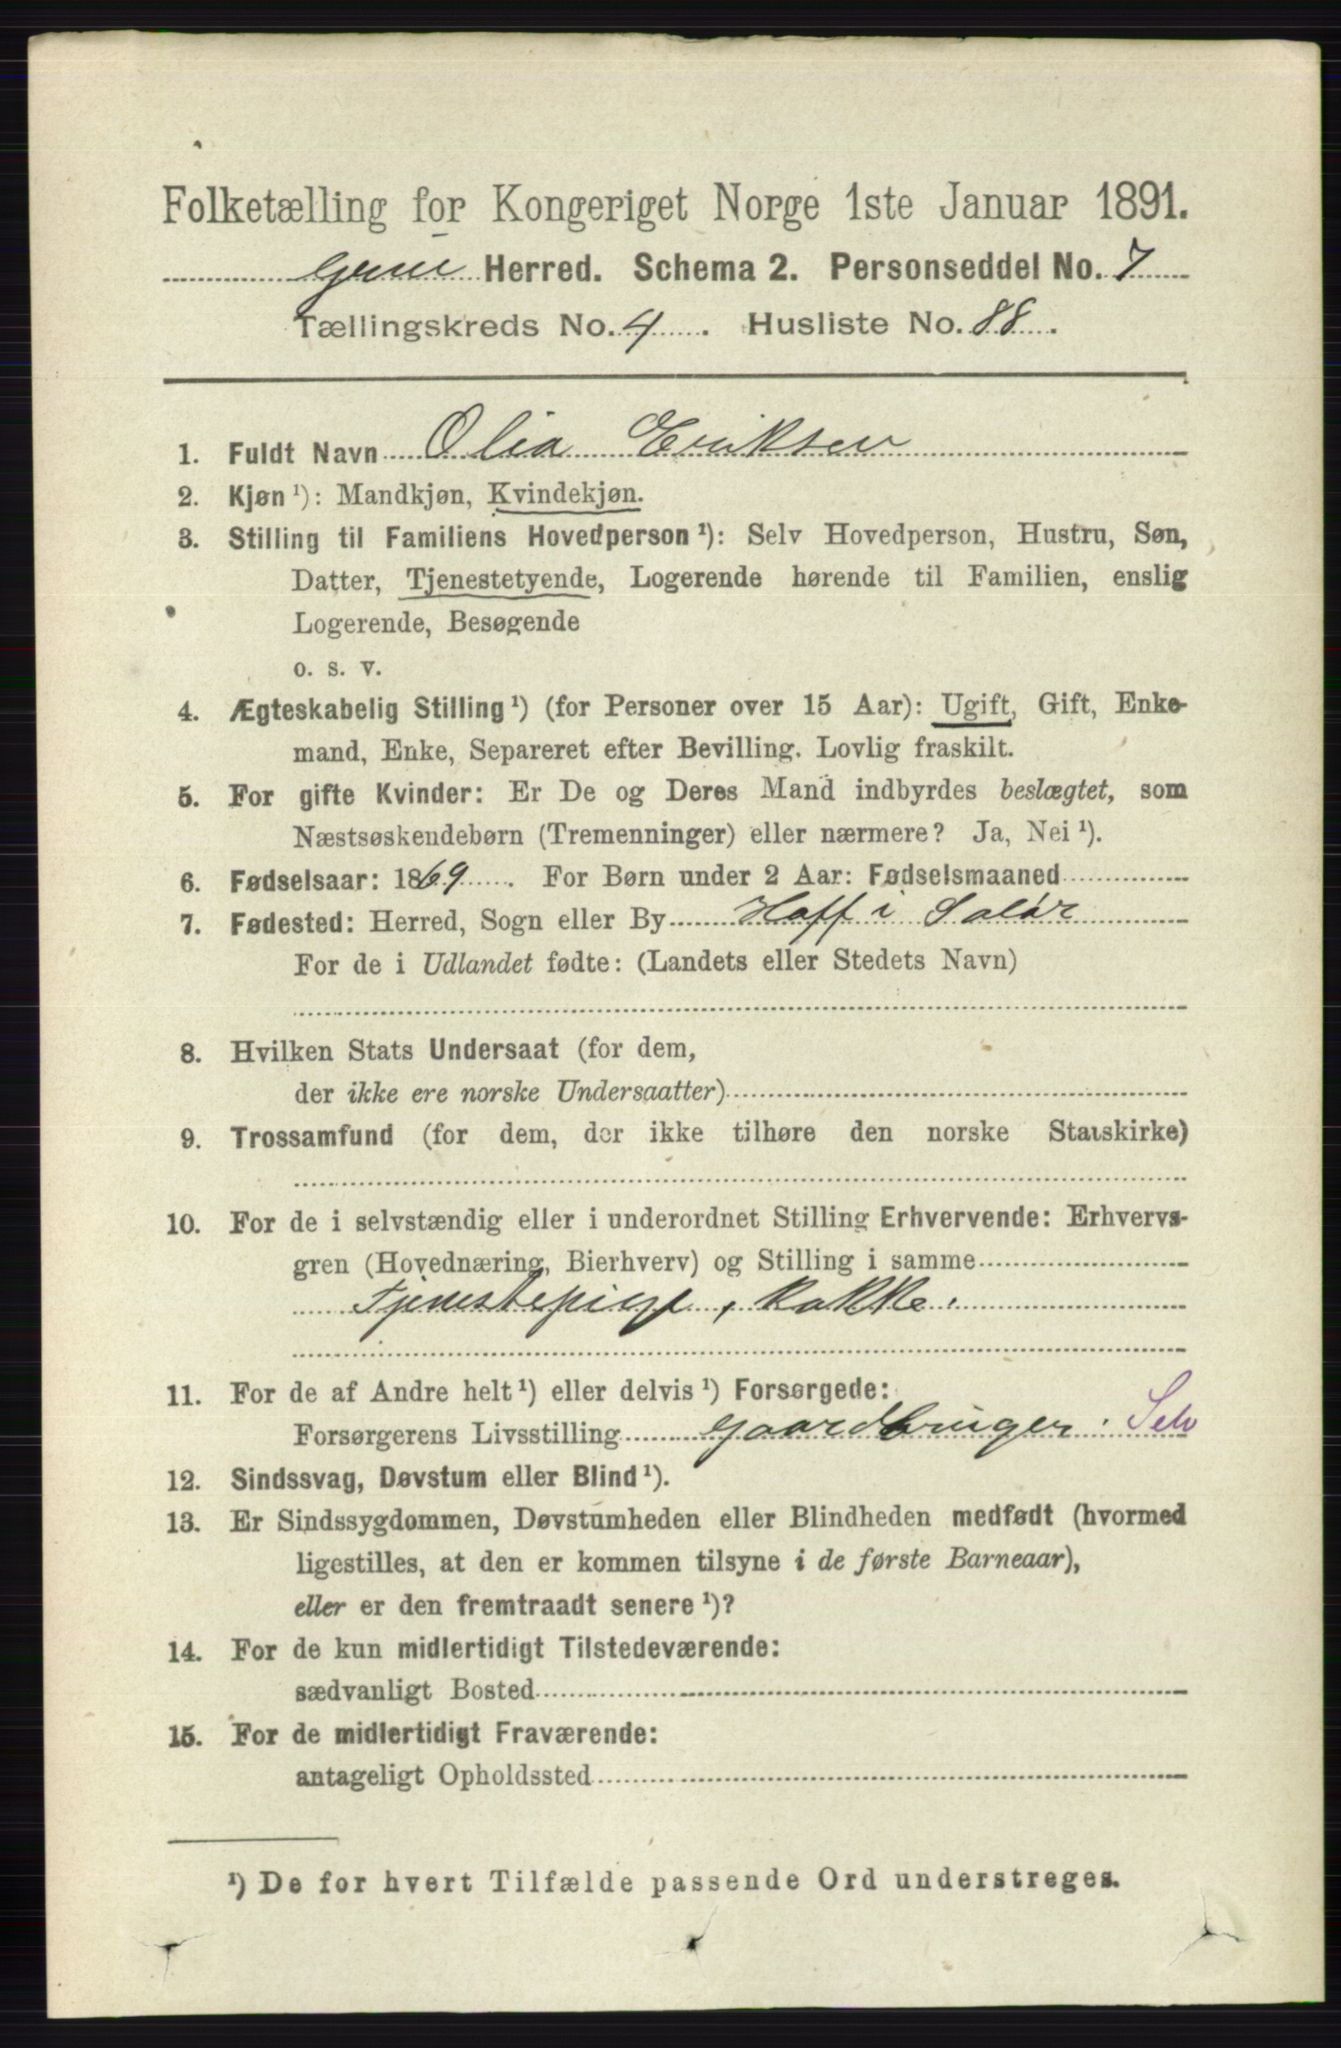 Folketælling for Kongeriget Norge 1ste Januar 1891.
Grue Herred. Schema 2. Personseddel No. 7
Tællingskreds No. 4. Husliste No. 88.
1. Fuldt Navn Olia Eriksen
2. Kjøn ¹): Mandkjøn, Kvindekjøn.
3. Stilling til Familiens Hovedperson ¹): Selv Hovedperson, Hustru, Søn,
Datter, Tjenestetyende, Logerende hørende til Familien, enslig
Logerende, Besøgende
o. s. v.
4. Ægteskabelig Stilling ¹) (for Personer over 15 Aar): Ugift, Gift, Enke-
mand, Enke, Separeret efter Bevilling. Lovlig fraskilt.
5. For gifte Kvinder: Er De og Deres Mand indbyrdes beslægtet, som
Næstsøskendebørn (Tremenninger) eller nærmere? Ja, Nei ¹).
6. Fødselsaar: 1869. For Børn under 2 Aar: Fødselsmaaned
7. Fødested: Herred, Sogn eller By Hoff i Solør
For de i Udlandet fødte: (Landets eller Stedets Navn)
8. Hvilken Stats Undersaat (for dem,
der ikke ere norske Undersaatter)
9. Trossamfund (for dem, der ikke tilhøre den norske Statskirke)
10. For de i selvstændig eller i underordnet Stilling Erhvervende: Erhvervs-
gren (Hovednæring, Bierhverv) og Stilling i samme
Tjenestepige, Kokke.
11. For de af Andre helt ¹) eller delvis ¹) Forsørgede:
Forsørgerens Livsstilling Gaardbruger. Selv
12. Sindssvag, Døvstum eller Blind ¹).
13. Er Sindssygdommen, Døvstumheden eller Blindheden medfødt (hvormed
ligestilles, at den er kommen tilsyne i de første Barneaar),
eller er den fremtraadt senere ¹)?
14. For de kun midlertidigt Tilstedeværende:
sædvanligt Bosted
15. For de midlertidigt Fraværende:
antageligt Opholdssted
¹) De for hvert Tilfælde passende Ord understreges.